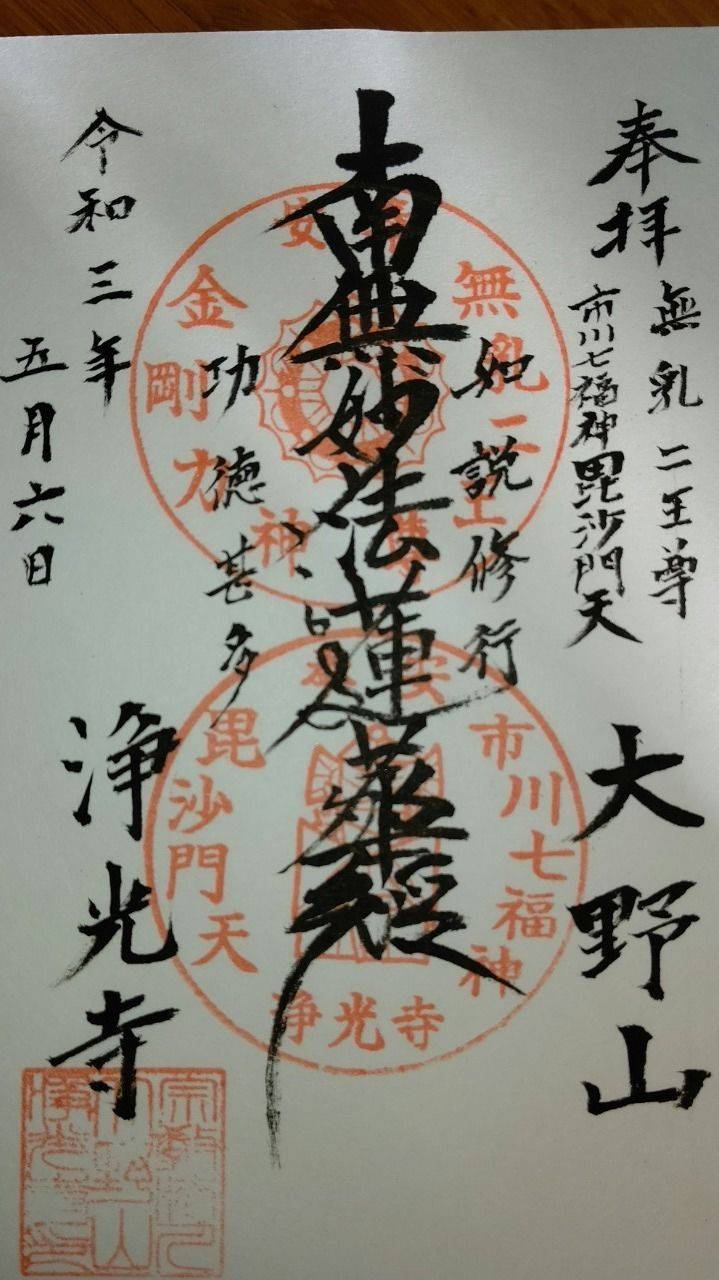 奉拝
無乳二王尊
市川七福神毘沙門天
大野山
如説修行
南無妙法蓮華経
功徳甚多
令和三年
五月六日
浄光寺
安
無乳二王
金剛力
神
市川七福神
毘沙門天
浄光寺